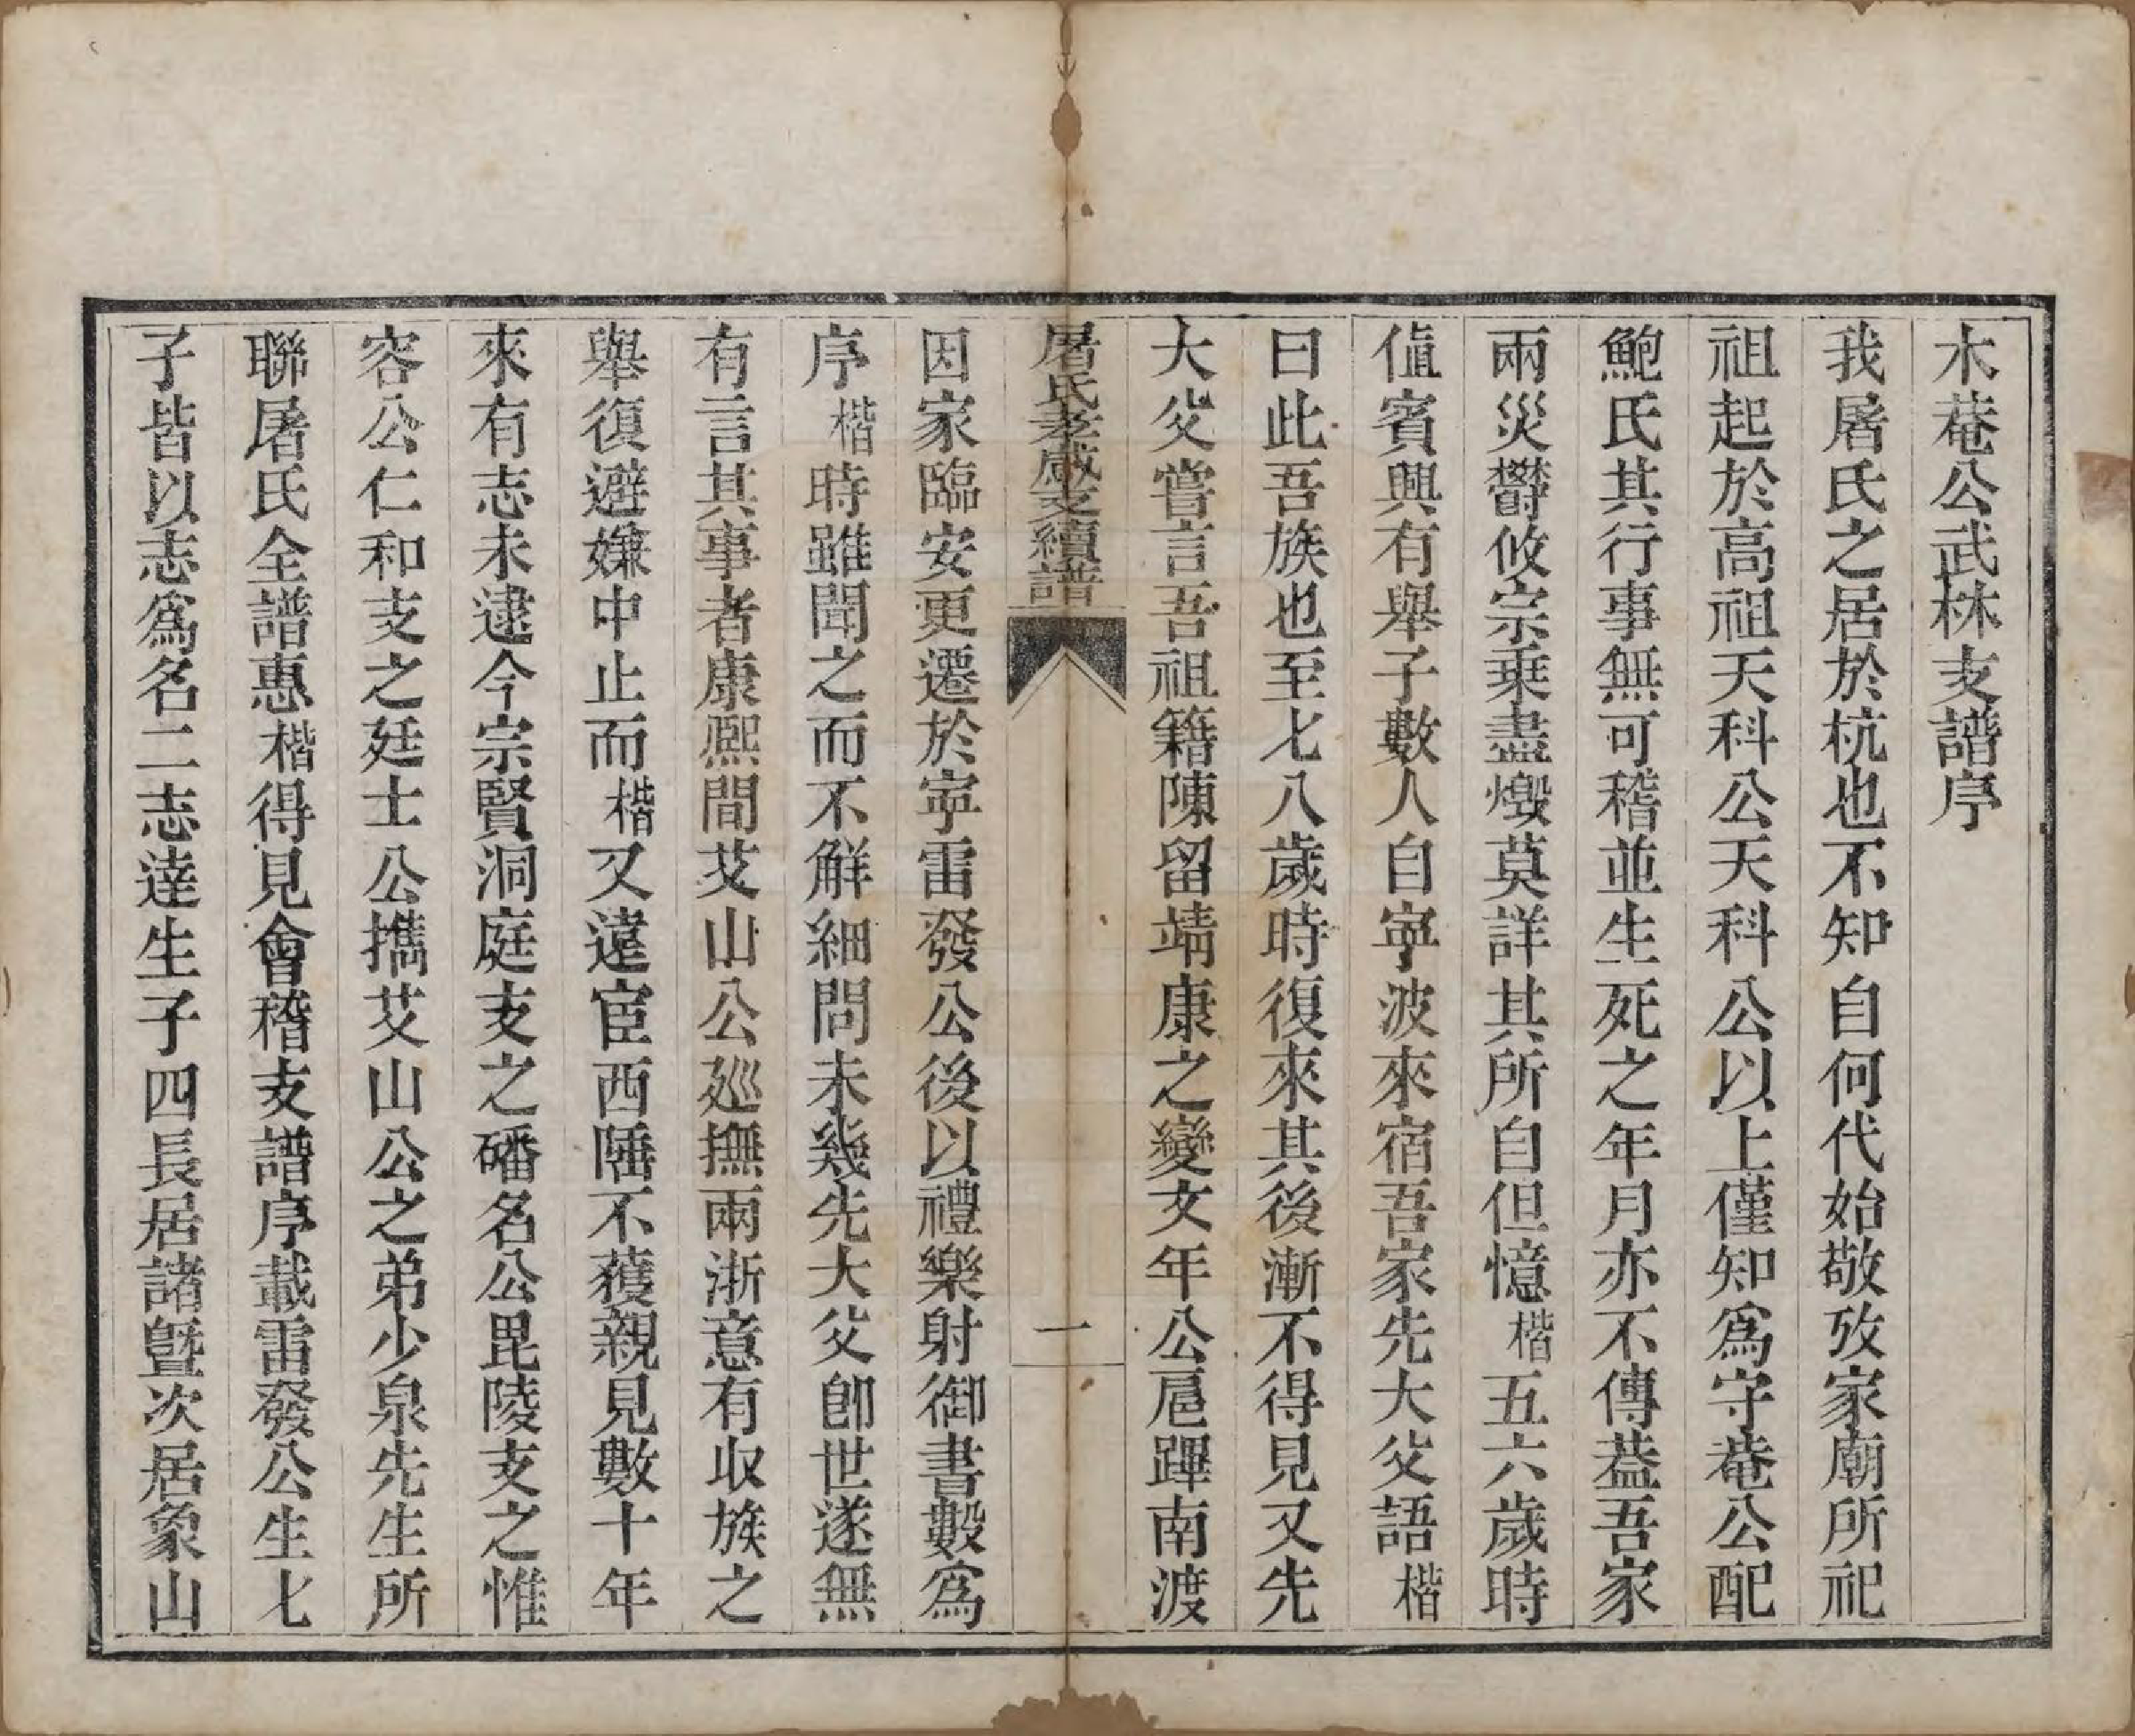 木菴公武林支譜序
我屠氏之居於杭也不知自何代始敬攷家廟所祀
祖起於高祖天科公天科公以上僅知爲守菴公配
鮑氏其行事無可稽並生死之年月亦不傳葢吾家
兩災欝攸宗乗盡燬莫詳其所自但憶楷五六歲時
値賓興有舉子數人自寧波來宿吾家先大父語楷
曰此吾族也至七八歲時復來其後漸不得見又先
大父嘗言吾祖籍陳留靖康之變文年公扈蹕南渡
屠氏孝感支續譜
一
因家臨安更遷於寧雷發公後以禮樂射御書數爲
序楷時雖聞之而不解細問未幾先大父卽世遂無
有言其事者康熙間艾山公廵撫兩浙意有収族之
舉復避嫌中止而楷又遠宦西陲不獲親見數十年
來有志未逮今宗賢洞庭支之磻名公毘陵支之惟
容公仁和支之廷士公攜艾山公之弟少泉先生所
聯屠氏全譜惠楷得見會稽支譜序載雷發公生七
子皆以志爲名二志逹生子四長居諸曁次居象山